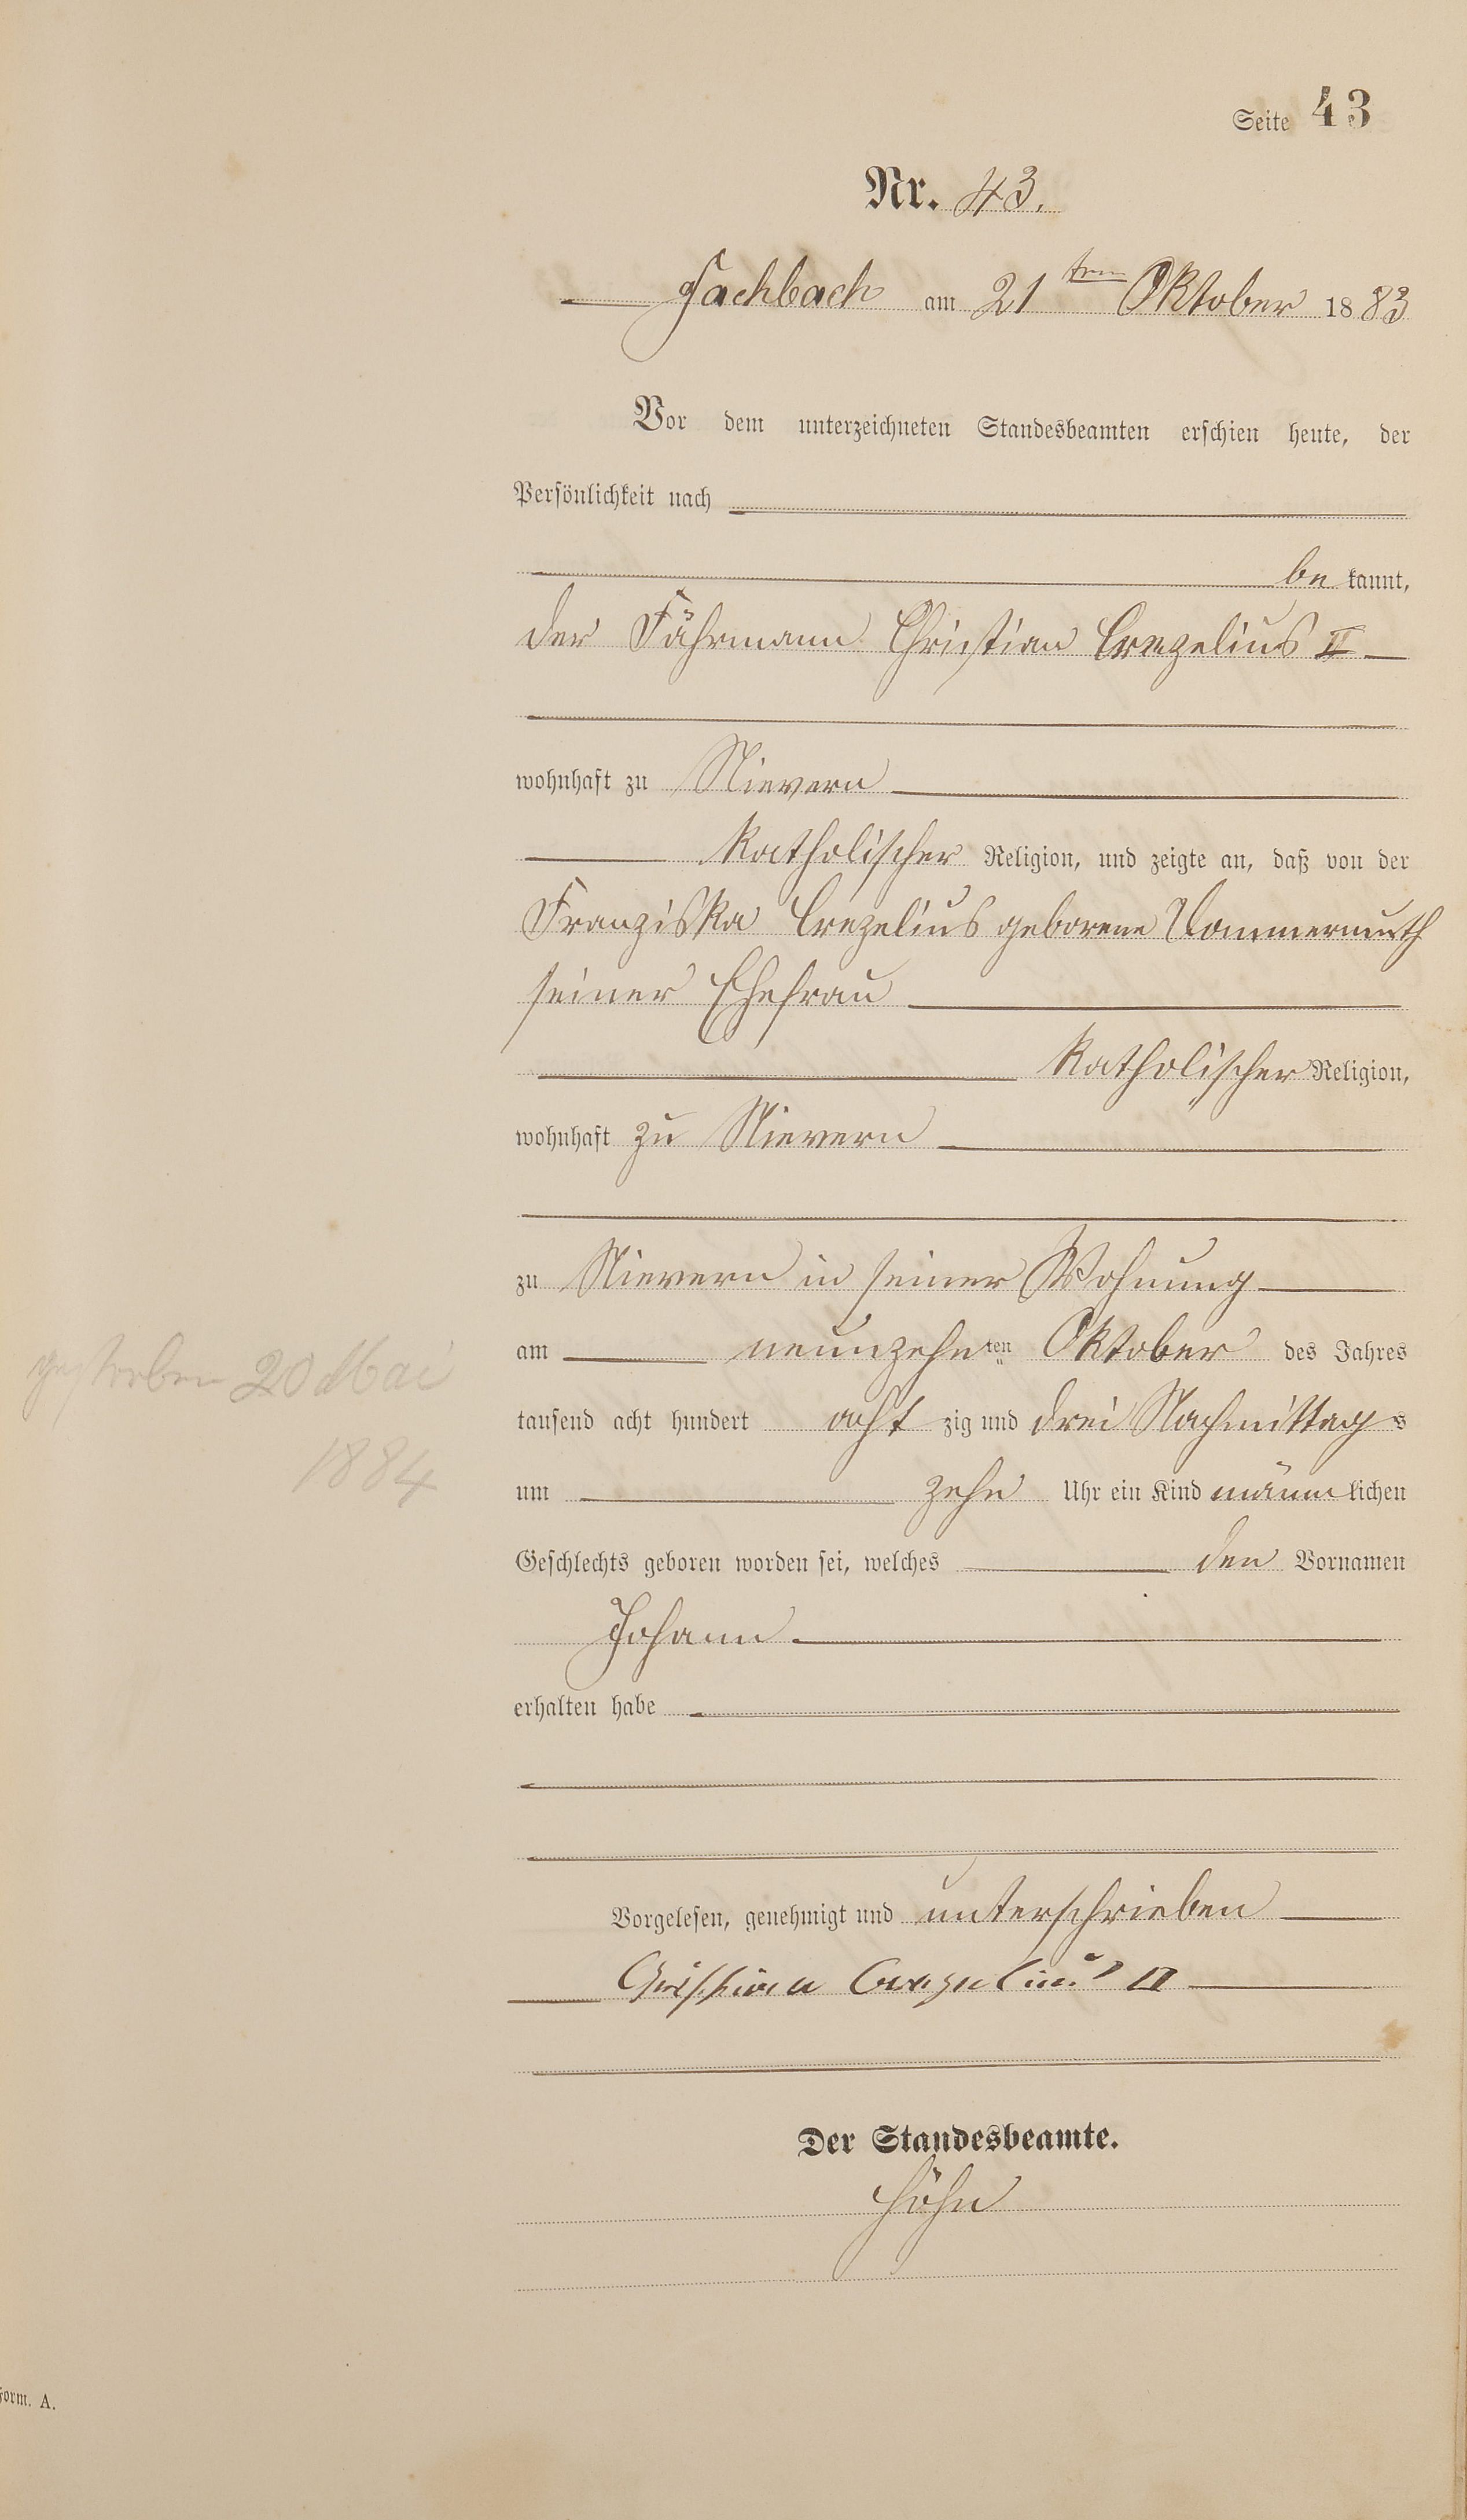 Seite 43
Nr. 43.
Fachbach am 21ten Oktober 1883
Vor dem unterzeichneten Standesbeamten erschien heute, der
Persönlichkeit nach
bekannt,
der Fährmann Christian Crezelius II
wohnhaft zu Nievern
katholischer Religion, und zeigte an, daß von der
Franziska Crezelius geborene Vommermuth
seiner Ehefrau
katholischer Religion,
wohnhaft zu Nievern
zu Nievern in seiner Wohnung
am neunzehnten Oktober des Jahres
gestorben 20 Mai
tausend acht hundert achtzig und drei Nachmittags
1884
um zehn Uhr ein Kind männlichen
Geschlechts geboren worden sei, welches den Vornamen
Johann
erhalten habe
Vorgelesen, genehmigt und unterschrieben
Christian Crezelius II
Der Standesbeamte.
Höhn
Form. A.